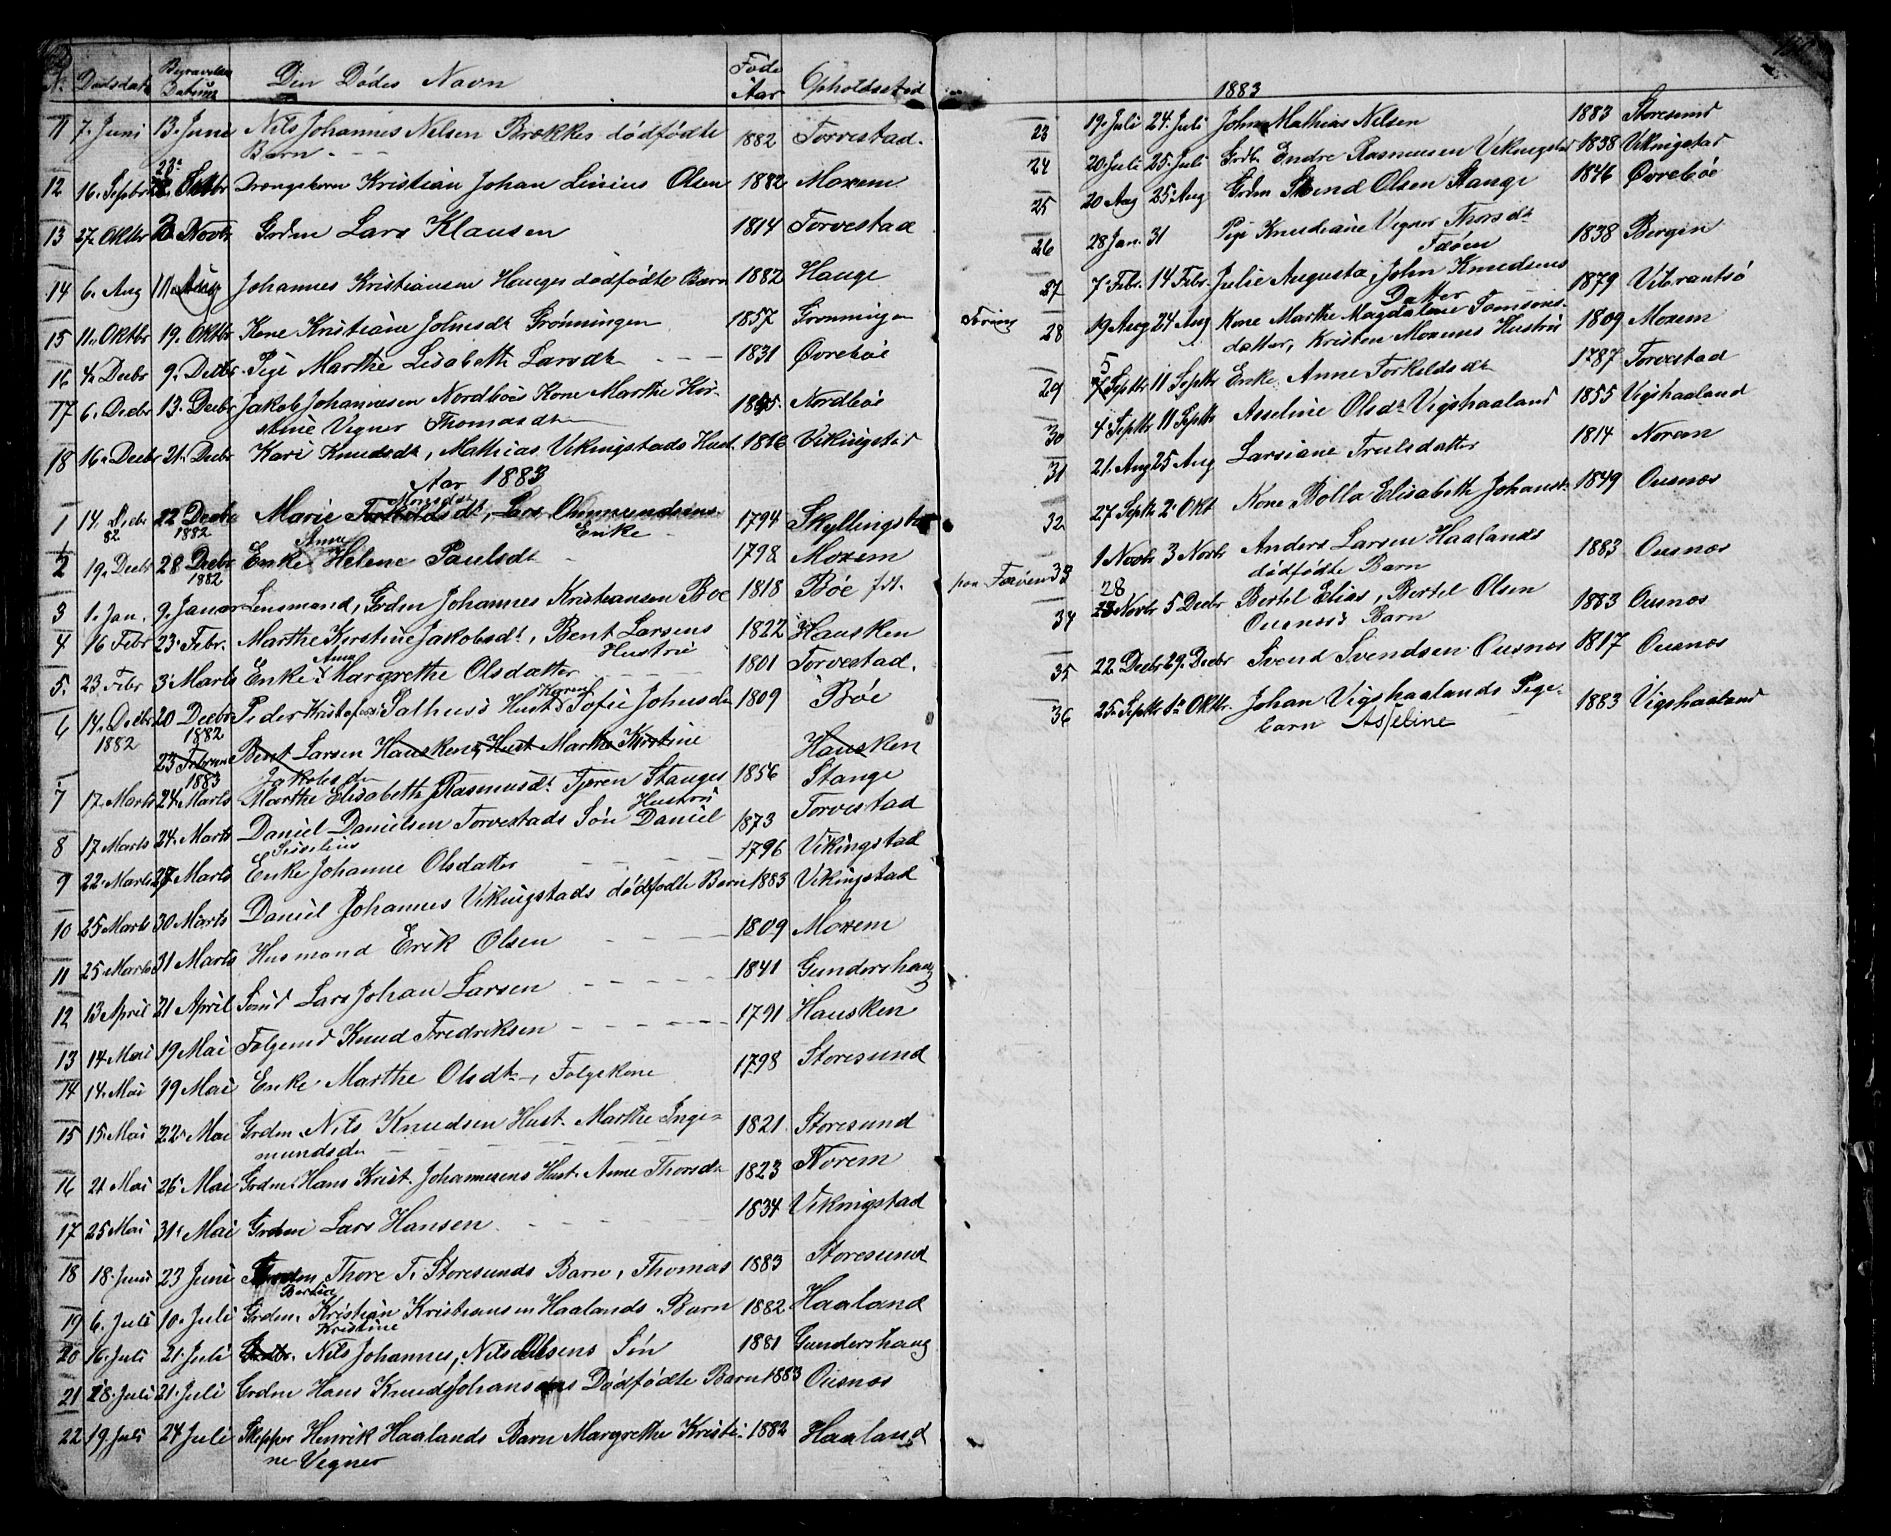 N. Dødsdat. Begravelses Datum Den Dødes Navn Føde Aar Opholdssted
11 7. Juni 13. Juni Nils Johannes Nelsen Brekkes dødfødte 1882 Torvestad.
Barn - -
12 16. Septbr 23. Septbr Drengebarn Kristian Johan Linius Olsen 1882 Moxem
13 27. Oktbr 3. Novbr Grdm Lars Klausen 1814 Torvestad
14 6. Aug 11. Aug Johannes Kristiansen Hauges dødfødte Barn 1882 Hauge
15 11. Oktbr 19. Oktbr Kone Kristiane Johnsdt Grønningen 1857 Grønningen
16 4. Decbr 9. Decbr Pige Marthe Lisabeth Larsdt - - - 1831 Øvrebøe
17 6. Decbr 13. Decbr Jakob Johannesen Nordbøes Kone Marthe Kir- Nordbøe
stine Vigner Thomasdt
18 16. Decbr 21. Decbr Kari Knudsdt, Mathias Vikingstads Hust. Vikingstad
Aar 1883
Monsdt
1 14. Decbr 82 22 Decbr 1882 Marie Torkildsdt, Lars Ommundsens 1794 Skyllingstad
Enke
2 19. Decbr 28 Decbr 1882 Enke Anna Helene Paulsdt 1798 Moxem
3 1. Jan. 9. Januar Lensmand, Grdm Johannes Kristiansen Bøe 1818 Bøe
4 16 Febr 23. Febr. Marthe Kirstine Jakobsdt, Bent Larsens 1822 Hausken
Hustru
5. 23. Febr 3. Marts Enke Anna Margrethe Olsdatter 1801 Torvestad.
6 14. Decbr 1882 20 Decbr 1882 Peder Kristofersen Salhus's Hust. Karen Sofie Johnsdt 1809 Bøe
23 Februar 1883 Bent Larsen Hauskens Hust Marthe Kirstine Hausken
Jakobsdt
7 17. Marts 24. Marts Marthe Elisabeth Rasmusdt Tjøren Stanges 1856 Stange
Hustru
8 17 Marts 24. Marts Daniel Danielsen Torvestads Søn Daniel 1873 Torvestad
Sisselius
9 22. Marts 27 Marts Enke Johanne Olsdatter - - - - 1796 Vikingstad
10 25 Marts 30 Marts Daniel Johannes Vikingstads dødfødte Barn 1883 Vikingstad
11 25 Marts 31 Marts Husmand Erik Olsen - - - - 1809 Moxem
12 13 April 21 April Smed Lars Johan Larsen - - - - 1841 Gundershaug
13 14 Mai 19 Mai Følgemd Knud Fredriksen - - - - - - 1791 Hausken
14 14. Mai 19 Mai Enke Marthe Olsdt, Følgekone 1798 Storesund
15 15 Mai 22. Mai Grdm. Nils Knudsen Hust. Marthe Inge- 1821. Storesund
mundsdt - - - - -
16 21 Mai 26. Mai Grdm. Hans Krist. Johannesens Hust. Anne Thorsdt 1823 Norem
17 25 Mai 31. Mai Grdm Lars Hansen - - - - 1834 Vikingstad
18 18. Juni 23 Juni Grdm, Thore T. Storesunds Barn, Thomas 1883 Storesund
19 6. Juli 10. Juli Grdm. Kristian Kristiansen Haalands Barn 1882 Haaland
Kristine
20 16. Juli 21. Juli Grdbr. Nils Johannes, Nils Olsens Søn 1881 Gundershaug
21 18. Juli 21. Juli Grdm Hans Knud Johansens Dødfødte Barn 1883 Ousnes
22 19. Juli 24 Juli Skipper Henrik Haalands Barn Margrethe Kristi- 1882 Haaland
ne Vegner
1883
23 19. Juli 24. Juli John Mathias Nilsen 1883 Storesund
24 20. Juli 25. Juli Grdb. Endre Rasmussen Vikingstad 1838 Vikingstad
25 20 Aug 25. Aug Grdm Svend Olsen Stange 1846 Øvrebøe
26 28 Jan. 31 Pige Knudiane Vigner Thorsdt 1838 Bergen
Føøen
27 7. Febr. 14 Febr. Julie Augusta, John Knudsens 1879 Vibrantsø
Datter
28 19 Aug 24 Aug Kone Marthe Magdalene Tomines- 1809 Moxem
datter, Kristen Moxems Hustru
29 5 Septbr 11 Septbr Enke Anne Torkildsdt 1787 Torvestad
30 4 Septbr 11 Septbr Asseline Olsdt Vigshaaland 1855 Vigshaaland
31 21. Aug 25 Aug Larsiane Trulsdatter 1814 Norem
32 27 Septb 2. Okt Kone Bolla Elisabeth Johansdt. 1849 Ousnes
paa Føøen 33 1 Novbr 3 Novbr Anders Larsen Haalands 1883 Ousnes
dødfødte Barn
34 28 Novbr 5 Decbr Bertel Elias, Bertel Olsen 1883 Ousnes
Ousnes's Barn
35 22. Decbr 29. Decbr Svend Svendsen Ousnes 1817 Ousnes
36 25. Septbr 1. Oktbr. Johan Vigshaalands Pige- 1883 Vigshaaland
barn Asseline